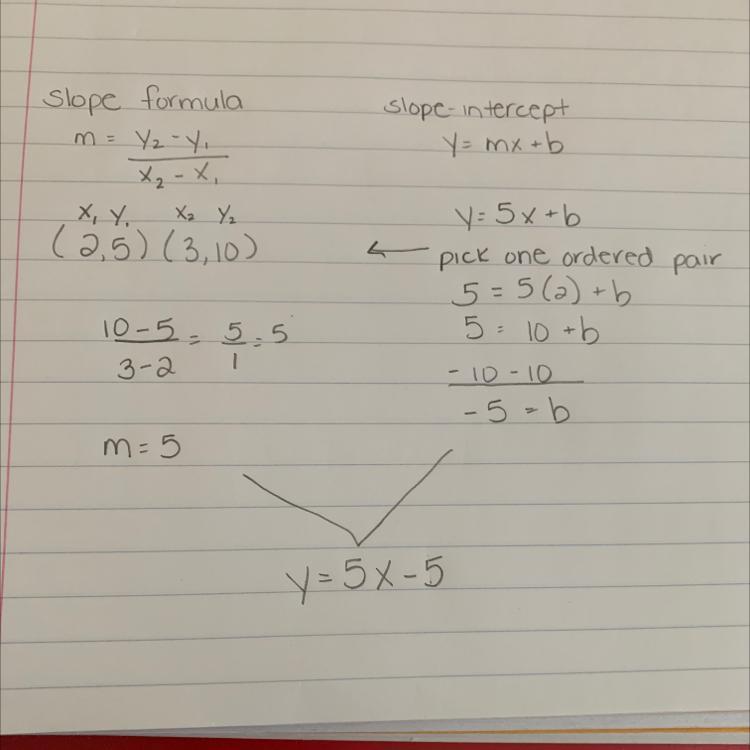 slope formula
m = y₂ - y₁
x₂ - x₁
x₁ y₁ x₂ y₂
(2,5) (3,10)
10-5 = 5 = 5
3-2 1
m = 5
slope-intercept
y = mx + b
y = 5x + b
← pick one ordered pair
5 = 5(2) + b
5 = 10 + b
-10 -10
-5 = b
y = 5x - 5